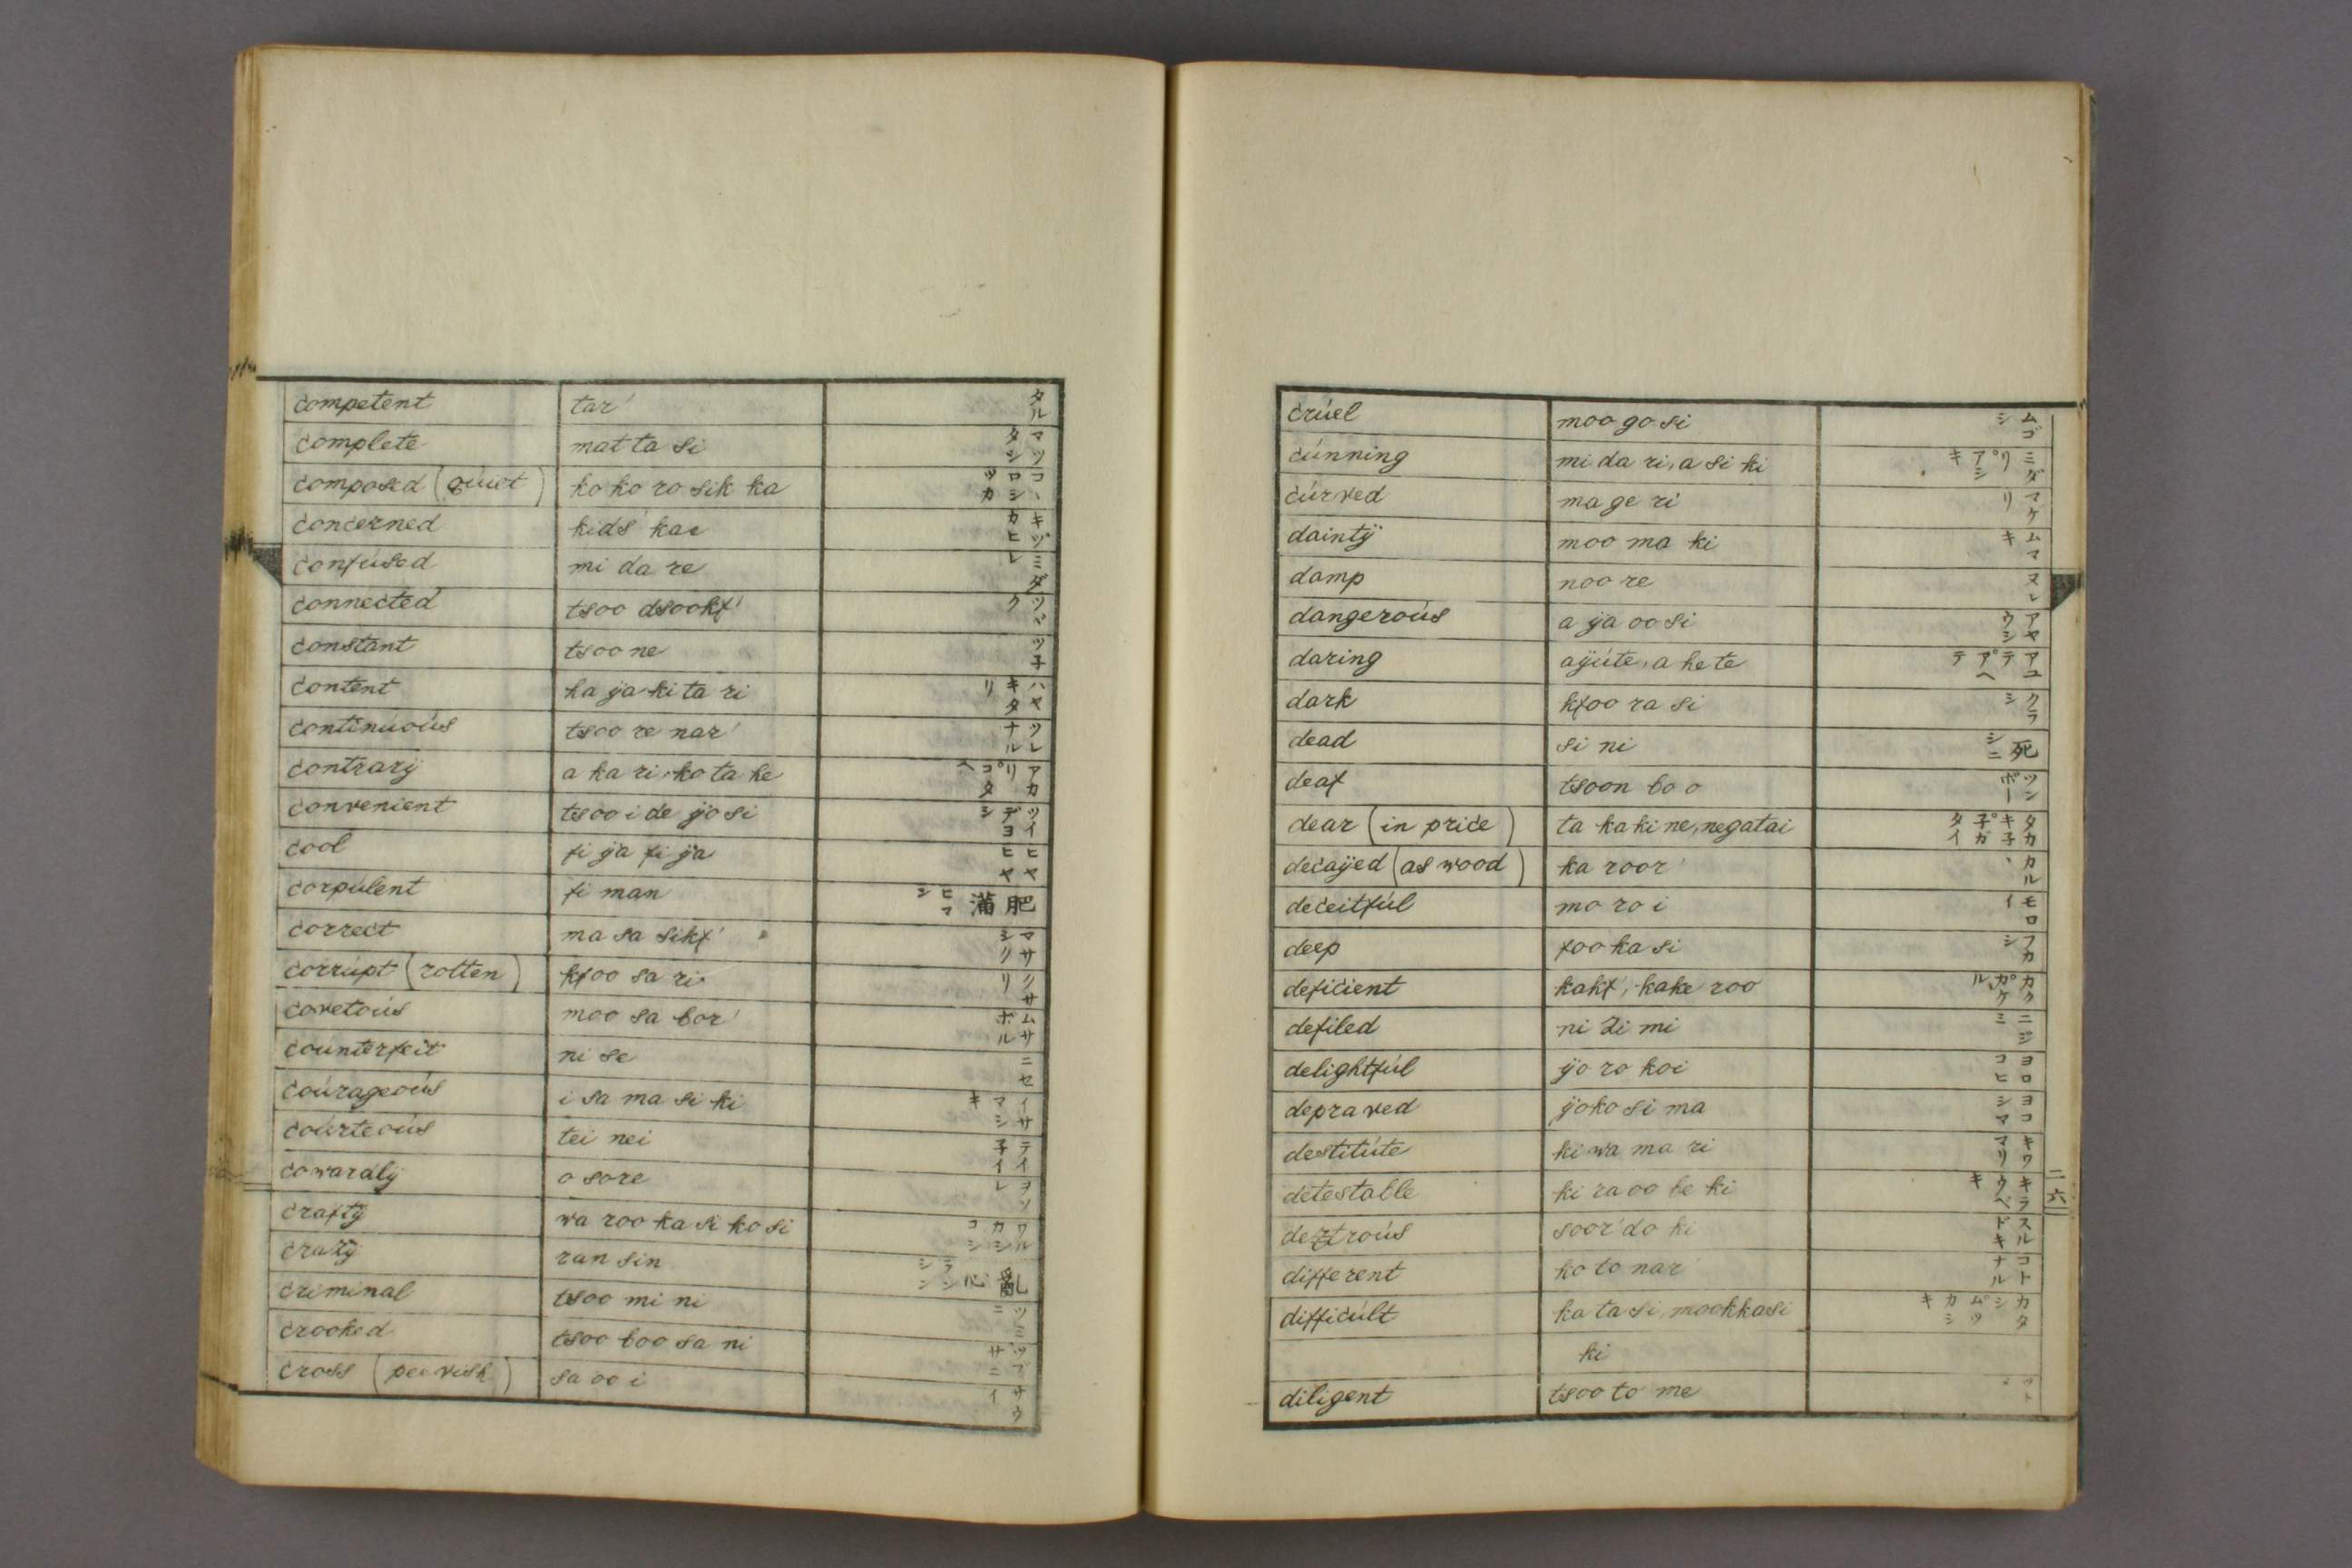 competent tar' タル
complete mat ta si マツタシ
composed (quiet) ko ko ro sik ka コヽロシツカ
concerned kids' kae キヅカヒ
confused mi da re ミダレ
connected tsoo dsookf' ツヾク
constant tsoo ne ツ子
content ha ÿa ki ta ri ハヤキタリ
continúoús tsoo re nar' ツレナル
contrarÿ a ka ri, ko ta he アカリコタヘ
convenient tsoo i de ÿo si ツイデヨシ
cool fi ÿa fi ÿa ヒヤヒヤ
corpúlent fi man 肥滿 ヒマン
correct ma sa sikf' マサシク
corrúpt (rotten) kfoo sa ri クサリ
covetoús moo sa bor' ムサボル
counterfeit ni se ニセ
coúrageoús i sa ma si ki イサマシキ
coúrteoús tei nei テイ子イ
cowardlÿ o sore ヲソレ
craftÿ wa roo ka si ko si ワルカシコシ
crazÿ ran sin 亂心 ランシン
criminal tsoo mi ni ツミニ
crooked tsoo boo sa ni ツブサニ
cross (peevish) sa oo i サウイ
crúel moo go si ムゴシ
cúnning mi da ri, a si ki ミダリアシキ
cúrved ma ge ri マケリ
daintÿ moo ma ki ムマキ
damp noo re ヌレ
dangeroús a ÿa oo si アヤウシ
daring aÿúte, a he te アユテアヘテ
dark kfoo ra si クラシ
dead si ni 死 シニ
deaf tsoon bo o ツンボー
dear (in price) ta ka ki ne, negatai タカキ子子ガタイ
decaÿed (as wood) ka roor' カルヽ
deceitfúl mo ro i モロイ
deep foo ka si フカシ
deficient kakf', kake roo カクカケル
defiled ni zi mi ニジミ
delightfúl ÿo ro koi ヨロコヒ
depraved ÿoko si ma ヨコシマ
destitúte ki wa ma ri キワマリ
detestable ki ra oo be ki キラウベキ
二六
dextroús soor' do ki スルドキ
different ko to nar' コトナル
difficúlt ka ta si, mookkasi カタシムツカシキ
ki
diligent tsoo to me